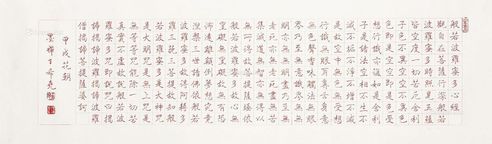 般若波羅蜜多心經
觀自在菩薩行深般若
波羅蜜多時照見五蘊
皆空度一切苦厄舍利
子色不異空空不異色
色即是空空即是色受
想行識亦復如是舍利
子是諸法空相不生不
滅不垢不淨不增不減
是故空中無色無受想
行識無眼耳鼻舌身意
無色聲香味觸法無眼
界乃至無意識界無無
明亦無無明盡乃至無
老死亦無老死盡無苦
集滅道無智亦無得以
無所得故菩提薩埵依
般若波羅蜜多故心無
罣礙無罣礙故無有恐
怖遠離顛倒夢想究竟
涅槃三世諸佛依般若
波羅蜜多故得阿耨多
羅三藐三菩提故知般
若波羅蜜多是大神咒
是大明咒是無上咒是
無等等咒能除一切苦
真實不虛故說般若波
羅蜜多咒即說咒曰揭
諦揭諦波羅揭諦波羅
僧揭諦菩提薩婆訶
甲戌花朝